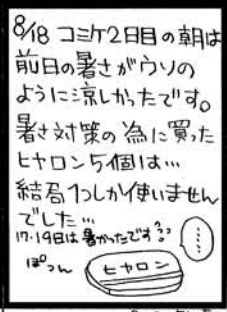 8/18 コミケ2日目の朝は
前日の暑さがウソの
ように涼しかったです。
暑さ対策の為に買った
ヒヤロン5個は…
結局1つしか使いません
でした…
17.19日は暑かったです??
ぽつん
ヒヤロン
……